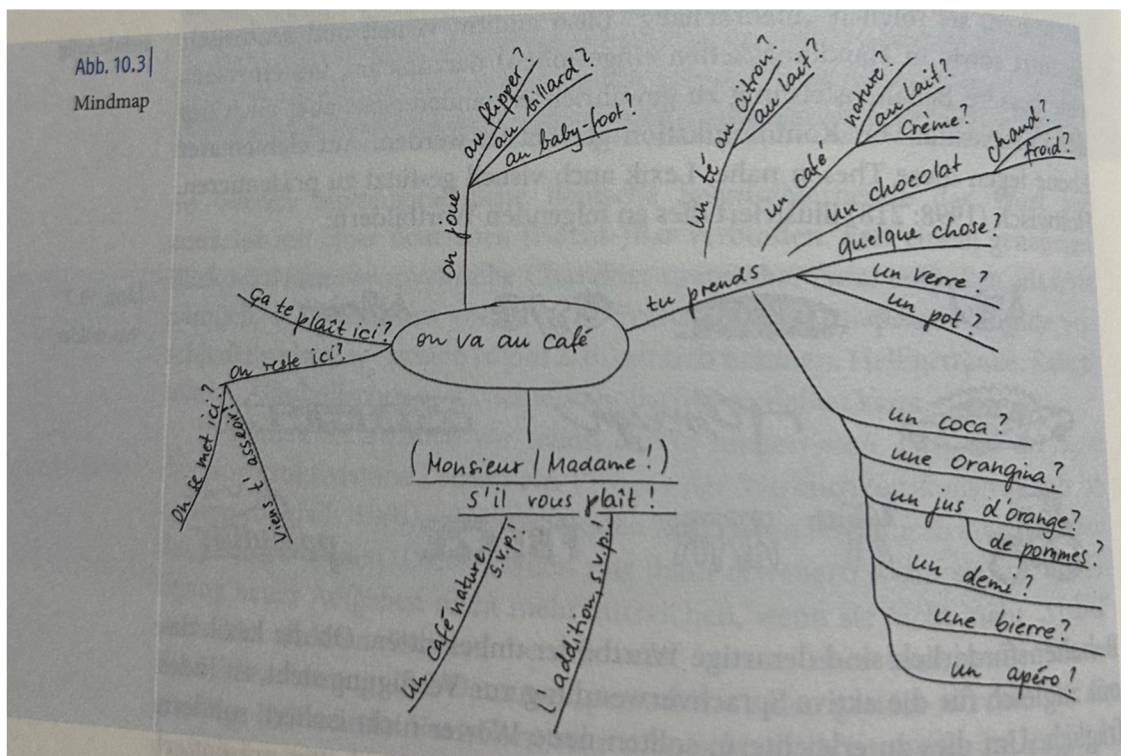 Abb. 10.3
Mindmap
on va au café
On joue
au flipper?
au billard?
au baby-foot?
tu prends
un té
au citron?
au lait?
un café
nature?
au lait?
crème?
un chocolat
chaud?
froid?
quelque chose?
un verre?
un pot?
un coca?
une Orangina?
un jus d'orange?
de pommes?
un demi?
une bierre?
un apéro?
(Monsieur / Madame!)
s'il vous plaît!
Un café nature,
s.v.p.!
L'addition, s.v.p.!
Ça te plaît ici?
On reste ici?
On se met ici?
Viens t'asseoir!